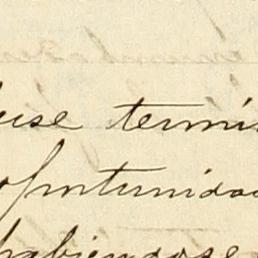 use termi
oportunida
habiendose